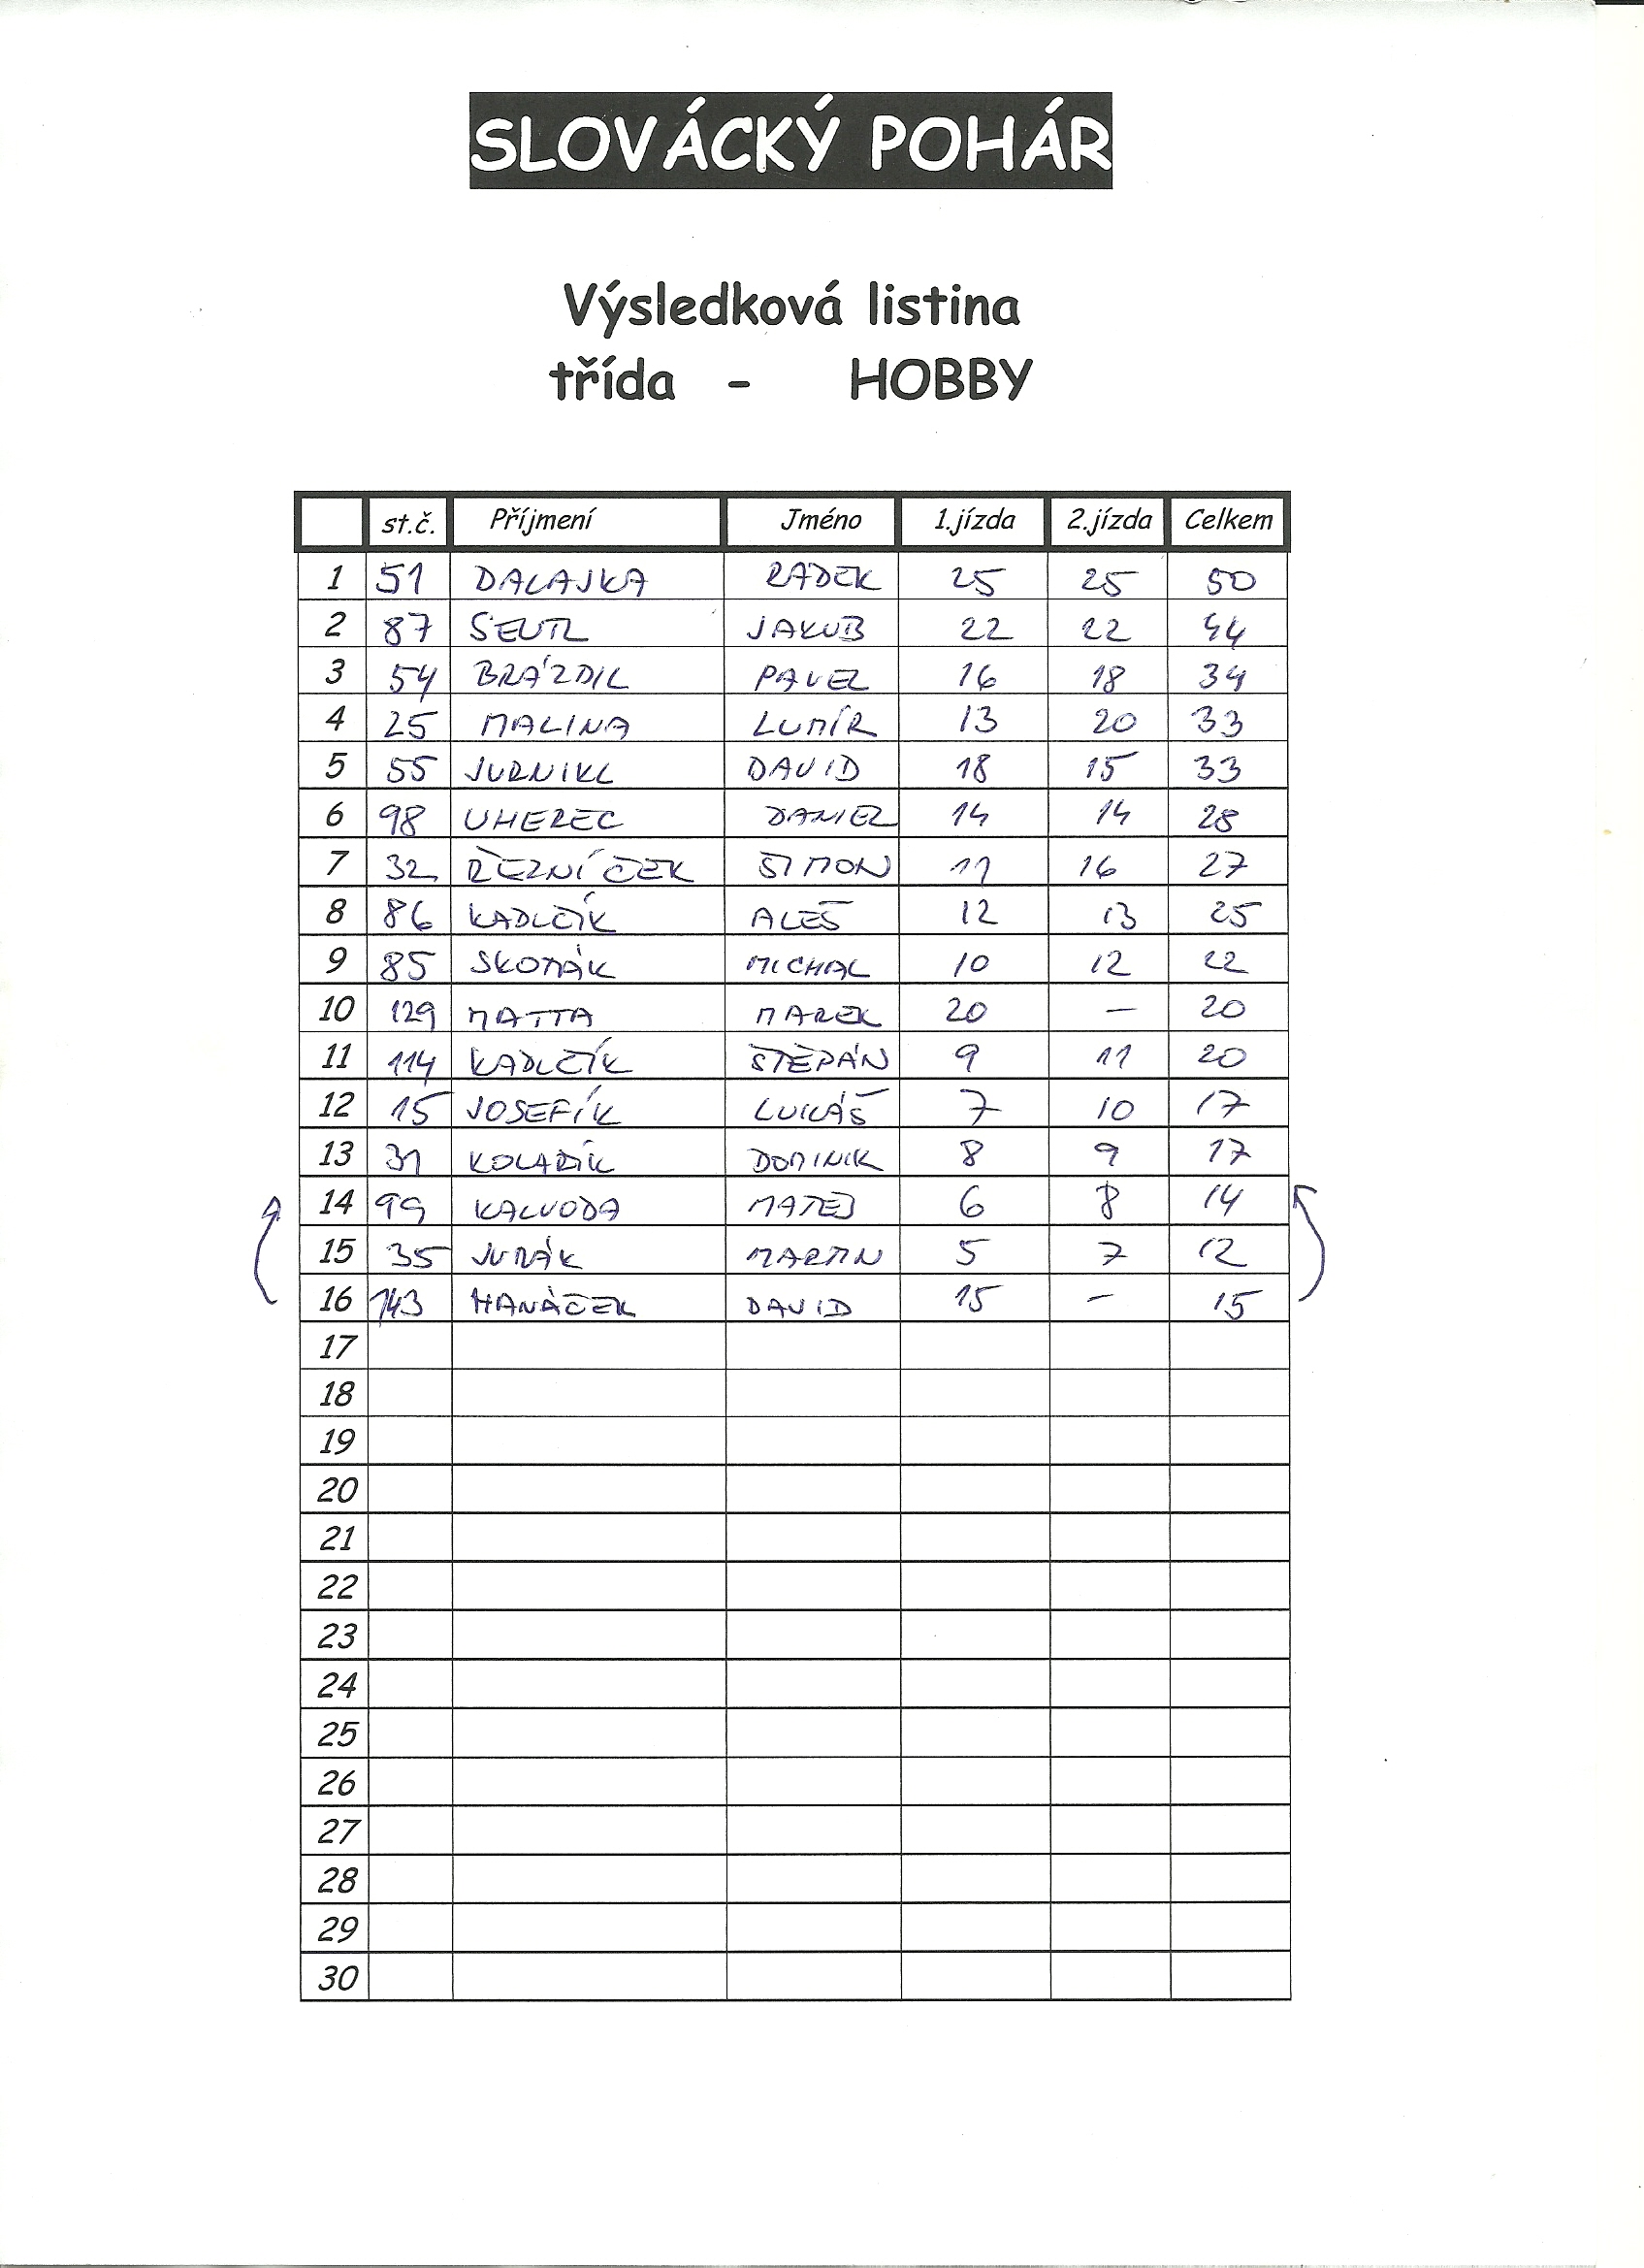 SLOVÁCKÝ POHÁR
Výsledková listina
třída - HOBBY
st.č. Příjmení Jméno 1.jízda 2.jízda Celkem
1 51 DALAJKA RADEK 25 25 50
2 87 SEUTL JAKUB 22 22 44
3 54 BRÁZDIL PAVEL 16 18 34
4 25 MALINA LUMÍR 13 20 33
5 55 JURNIKL DAVID 18 15 33
6 98 UHEREC DANIEL 14 14 28
7 32 ŘEZNÍČEK ŠIMON 11 16 27
8 86 KADLČÍK ALEŠ 12 13 25
9 85 SKOMÁK MICHAL 10 12 22
10 129 MATTA MAREK 20 — 20
11 114 KADLČÍK ŠTĚPÁN 9 11 20
12 15 JOSEFÍK LUKÁŠ 7 10 17
13 31 KOLAŘÍK DOMINIK 8 9 17
14 99 KALVODA MATĚJ 6 8 14
15 35 JURÁK MARTIN 5 7 12
16 143 HANÁČEK DAVID 15 - 15
17
18
19
20
21
22
23
24
25
26
27
28
29
30